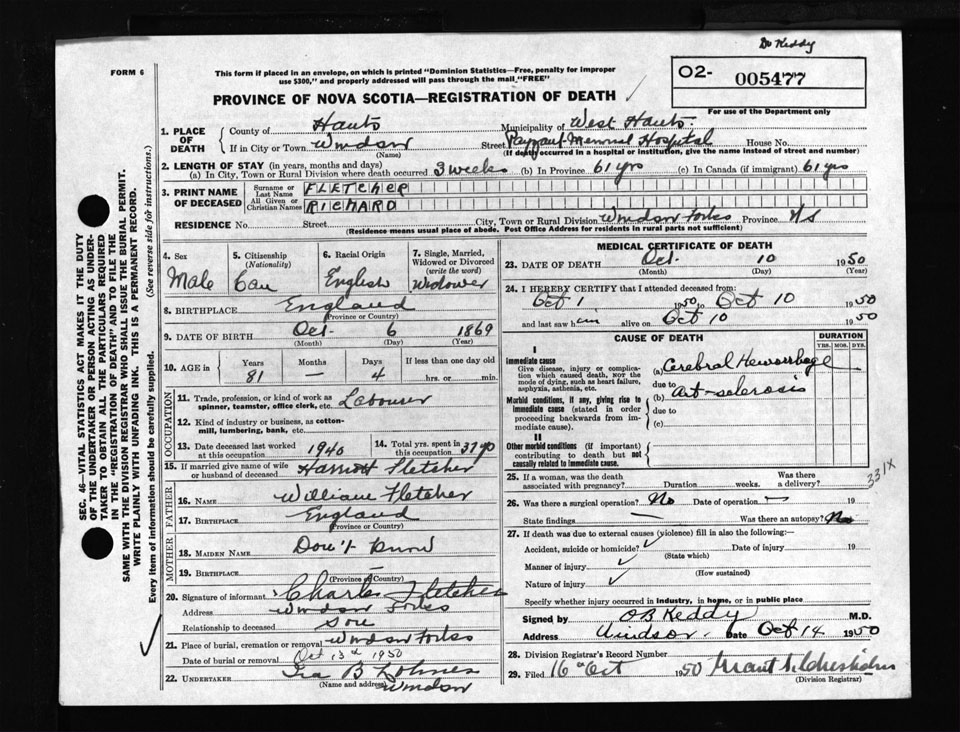 Dr Keddy
FORM 6
This form if placed in an envelope, on which is printed "Dominion Statistics—Free, penalty for improper
use $300," and properly addressed will pass through the mail "FREE"
O2- 005477
PROVINCE OF NOVA SCOTIA—REGISTRATION OF DEATH
For use of the Department only
1. PLACE OF DEATH
County of Hants Municipality of West Hants
If in City or Town Windsor Street Payzant Memorial Hospital House No.
(Name) (If death occurred in a hospital or institution, give the name instead of street and number)
2. LENGTH OF STAY (in years, months and days)
(a) In City, Town or Rural Division where death occurred 3 weeks (b) In Province 61 yrs (c) In Canada (if immigrant) 61 yrs
3. PRINT NAME OF DECEASED
Surname or Last Name FLETCHER
All Given or Christian Names RICHARD
RESIDENCE No. Street City, Town or Rural Division Windsor Forks Province NS
(Residence means usual place of abode. Post Office Address for residents in rural parts not sufficient)
4. Sex Male
5. Citizenship (Nationality) Can
6. Racial Origin English
7. Single, Married, Widowed or Divorced (write the word) Widower
8. BIRTHPLACE England
(Province or Country)
9. DATE OF BIRTH Oct. 6 1869
(Month) (Day) (Year)
10. AGE in Years Months Days If less than one day old
81 — 4 hrs. or min.
OCCUPATION
11. Trade, profession, or kind of work as spinner, teamster, office clerk, etc. Labourer
12. Kind of industry or business, as cotton-mill, lumbering, bank, etc.
13. Date deceased last worked at this occupation 1940
14. Total yrs. spent in this occupation 37 yrs
15. If married give name of wife or husband of deceased Harriett Fletcher
FATHER
16. NAME William Fletcher
17. BIRTHPLACE England
(Province or Country)
MOTHER
18. MAIDEN NAME Don't know
19. BIRTHPLACE —
(Province or Country)
20. Signature of informant Charles Fletcher
Address Windsor Forks
Relationship to deceased Son
21. Place of burial, cremation or removal Windsor Forks
Date of burial or removal Oct 13th 1950
22. UNDERTAKER Ira B Lohnes
(Name and address) Windsor
MEDICAL CERTIFICATE OF DEATH
23. DATE OF DEATH Oct. 10 1950
(Month) (Day) (Year)
24. I HEREBY CERTIFY that I attended deceased from:
Oct 1 1950 to Oct 10 1950
and last saw him alive on Oct 10 1950
CAUSE OF DEATH
DURATION
YRS. MOS. DYS.
I
Immediate cause
Give disease, injury or complication which caused death, NOT the mode of dying, such as heart failure, asphyxia, asthenia, etc.
(a) Cerebral Hemorrhage
due to
Morbid conditions, if any, giving rise to immediate cause (stated in order proceeding backwards from immediate cause).
(b) Art-sclerosis
due to
(c)
II
Other morbid conditions (if important) contributing to death but not causally related to immediate cause.
331X
25. If a woman, was the death associated with pregnancy? Duration weeks. Was there a delivery?
26. Was there a surgical operation? No Date of operation — 19
State findings — Was there an autopsy? No
27. If death was due to external causes (violence) fill in also the following:—
Accident, suicide or homicide? Date of injury 19
(State which)
Manner of injury
(How sustained)
Nature of injury
Specify whether injury occurred in industry, in home, or in public place
Signed by OB Keddy M.D.
Address Windsor. Date Oct 14 1950
28. Division Registrar's Record Number
29. Filed 16th Oct 1950 Grant
(Division Registrar)
SEC. 46—VITAL STATISTICS ACT MAKES IT THE DUTY
OF THE UNDERTAKER OR PERSON ACTING AS UNDER-
TAKER TO OBTAIN ALL THE PARTICULARS REQUIRED
IN THE "REGISTRATION OF DEATH" AND TO FILE THE
SAME WITH THE DIVISION REGISTRAR WHO SHALL ISSUE THE BURIAL PERMIT.
WRITE PLAINLY WITH UNFADING INK. THIS IS A PERMANENT RECORD.
Every item of information should be carefully supplied. (See reverse side for instructions.)